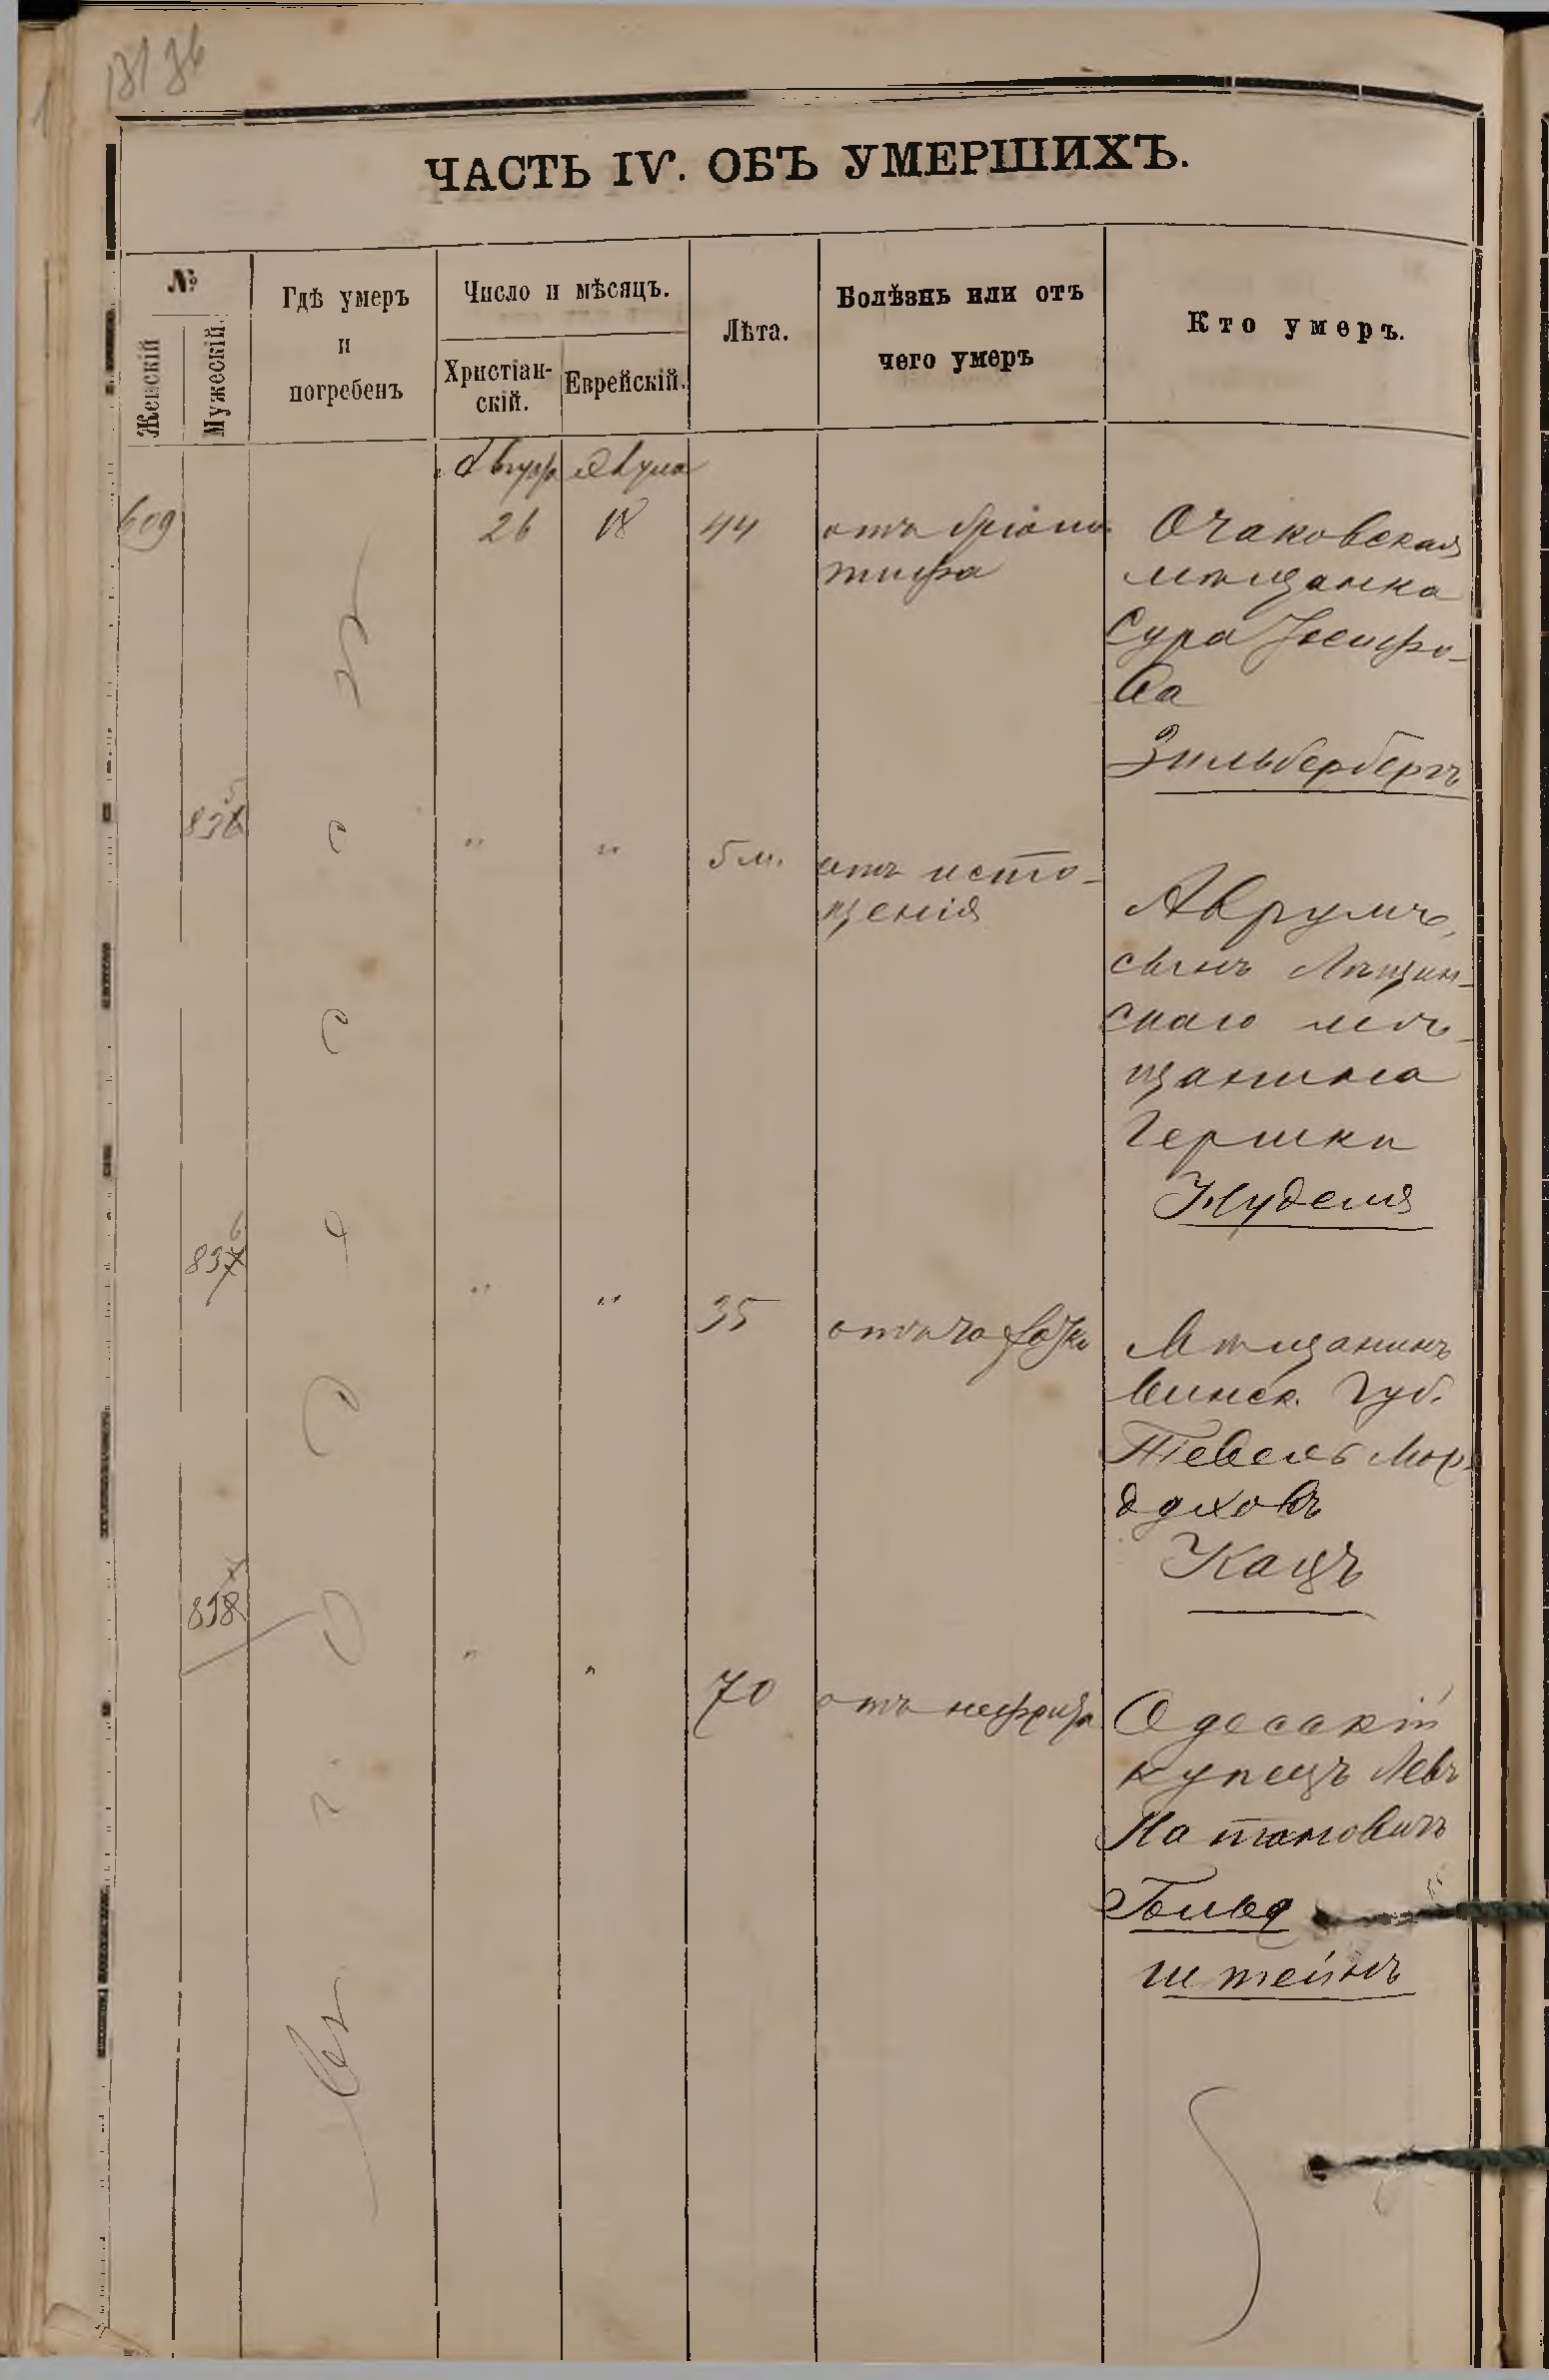 ЧАСТЬ IV. ОБЪ УМЕРШИХЪ.
№
Женскій
Мужескій.
Гдѣ умеръ
и
погребенъ
Число и мѣсяцъ.
Христіан-
скій.
Еврейскій.
Лѣта.
Болѣзнь или отъ
чего умеръ
Кто умеръ.
Август
609
26 18 44
отъ брюшн
тифа
Очаковская
мѣщанка
Сура Іосифо-
ва
Зильбербергъ
836
5
" " 5 м.
отъ исто-
щенія
Аврумъ,
сынъ
скаго мѣ-
щанина
Гершки
Нуделя
837
6
" " 35
отъ
Мѣщанинъ
Тевель Мор
духовъ
Кацъ
838
7
" " 70
отъ нефрита
Одесскій
купецъ Левъ
Натановичъ
Гольд
штейнъ
въ г. Одессѣ